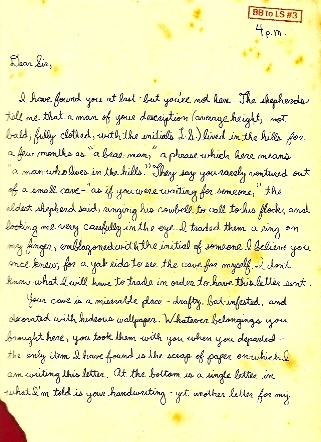 BB to LS #3
4 p.m.
Dear Sir,
I have found you at last - but you're not here. The shepherds
tell me that a man of your description (average height, not
bald, fully clothed, with the initials L.S.) lived in the hills for
a few months as "a brae man," a phrase which here means
"a man who lives in the hills." They say you rarely ventured out
of a small cave - "as if you were waiting for someone," the
eldest shepherd said, ringing his cowbell to call to his flock, and
looking me very carefully in the eye. I traded them a ring on
my finger, emblazoned with the initial of someone I believe you
once knew, for a yak ride to see the cave for myself. I don't
know what I will have to trade in order to have this letter sent.
Your cave is a miserable place - drafty, bat-infested, and
decorated with hideous wallpaper. Whatever belongings you
brought here, you took them with you when you departed -
the only item I have found is the scrap of paper on which I
am writing this letter. At the bottom is a single letter in
what I'm told is your handwriting - yet another letter for my